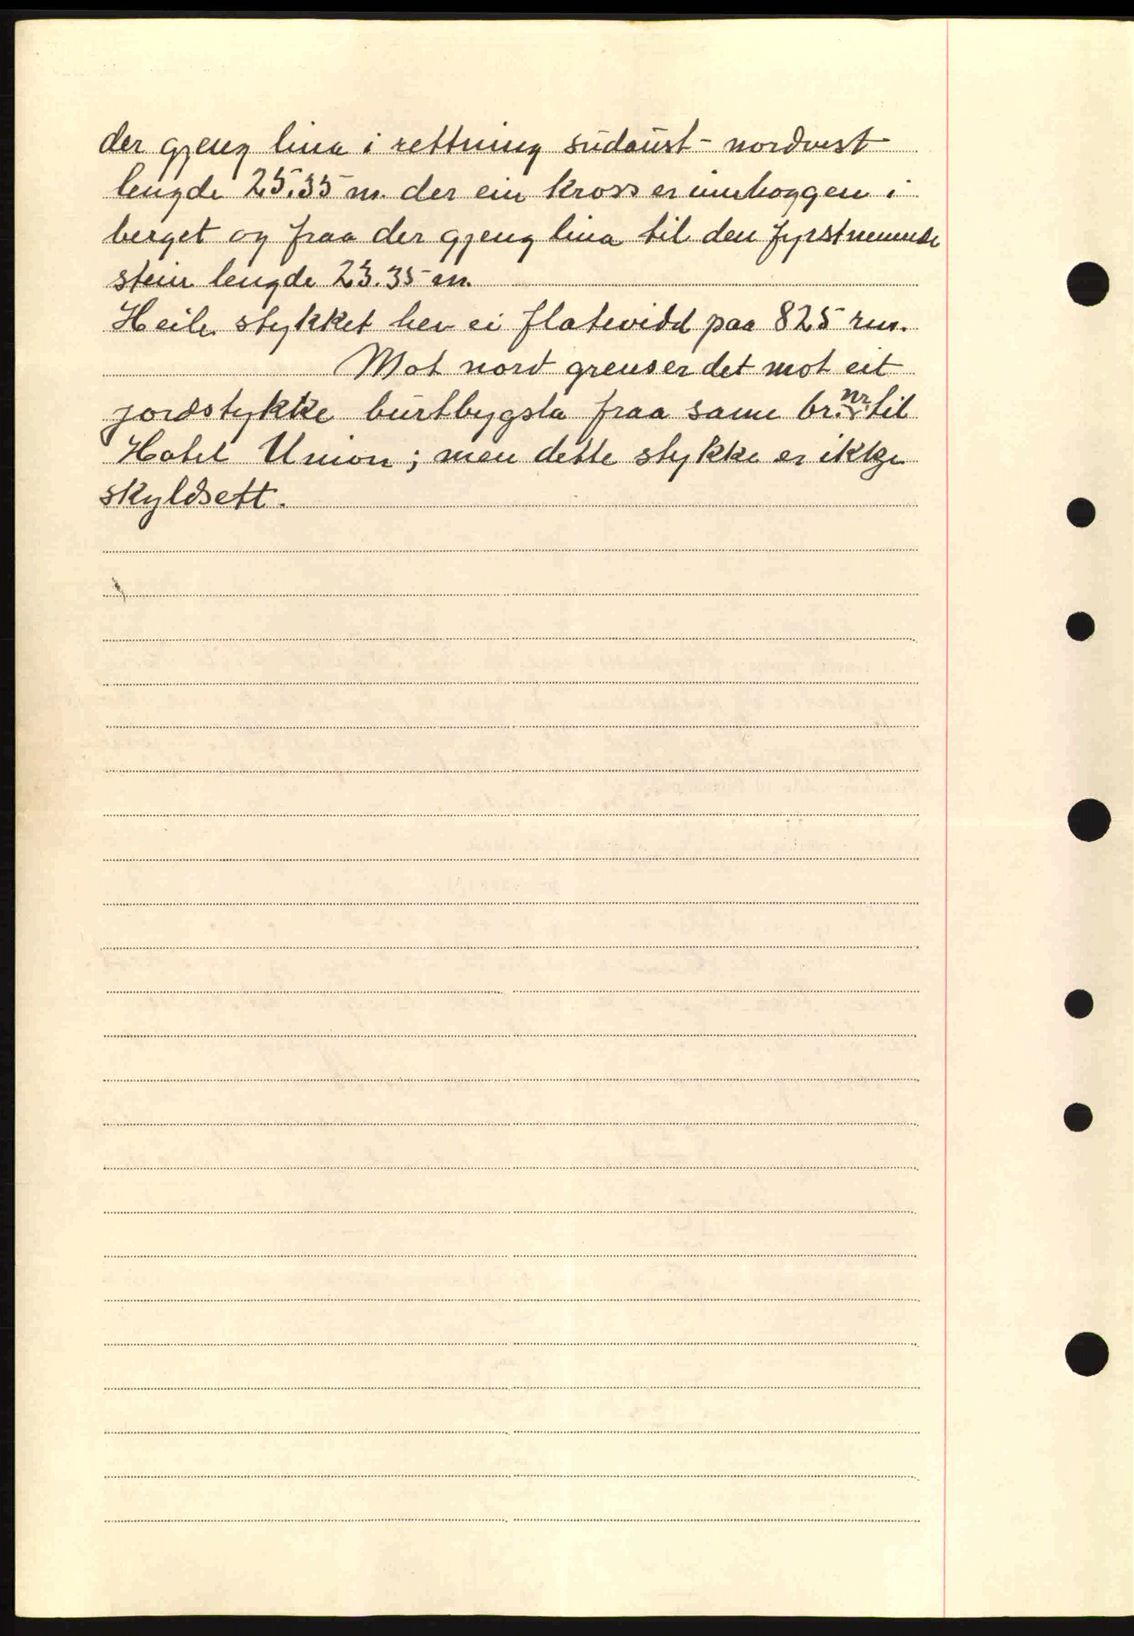 der gjeng lina i rettning sudaust - nordvest
lengde 25.35 m. der ein kross er innhoggen i
berget og fraa der gjeng lina til den fyrstnemnde
stein lengde 23.35 m.
Heile stykket hev ei flatevidd paa 825 rm.
Mot nord grenser det mot eit
jordstykke burtbygsla fraa same br. nr. til
Hotel Union; men dette stykke er ikkje
skyldsett.